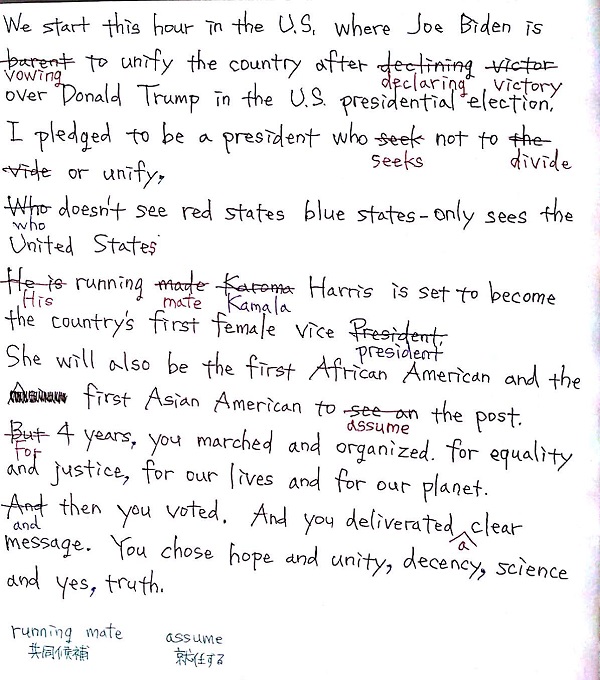 We start this hour in the U.S. where Joe Biden is
barent to unify the country after declining victor
vowing declaring victory
over Donald Trump in the U.S. presidential election.
I pledged to be a president who seek not to the
seeks divide
vide or unify,
Who doesn't see red states blue states-only sees the
who
United States
He is running made Karoma Harris is set to become
His mate Kamala
the country's first female vice President.
president
She will also be the first African American and the
first Asian American to see an the post.
assume
But 4 years, you marched and organized. for equality
For
and justice, for our lives and for our planet.
And then you voted. And you deliverated clear
and a
message. You chose hope and unity, decency, science
and yes, truth.
running mate assume
共同候補 就任する